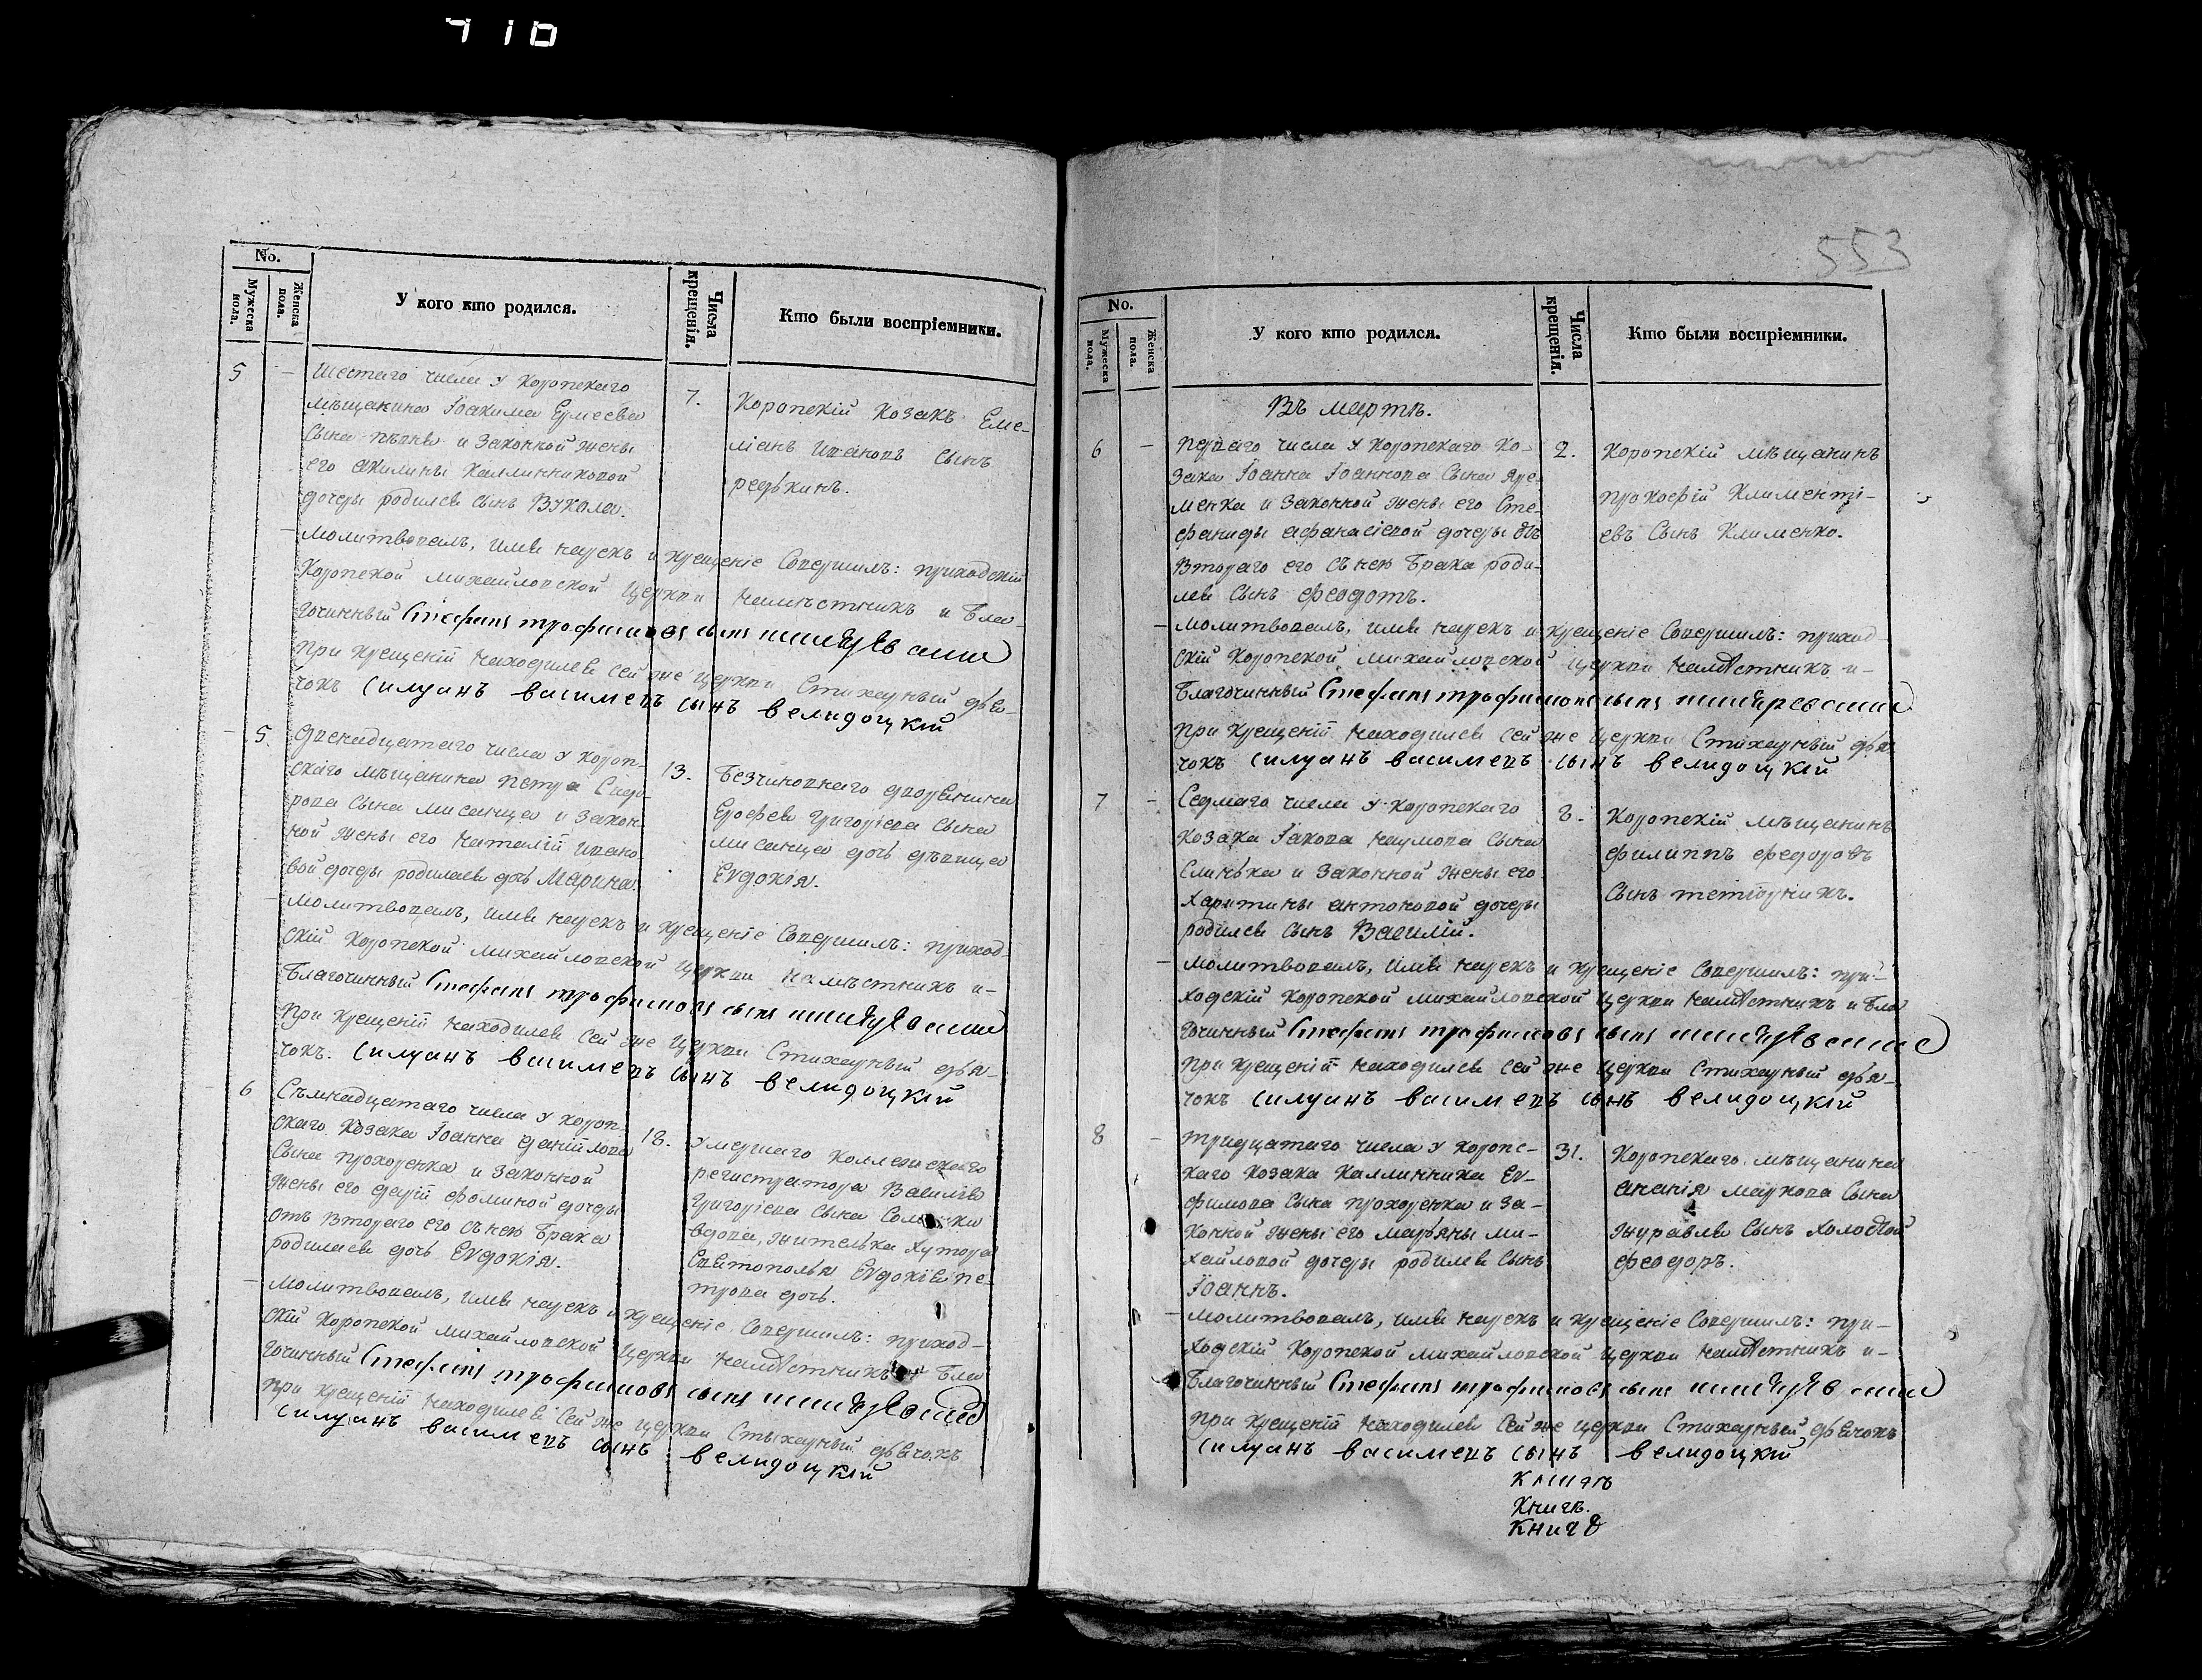 710
No.
Мужеска пола.
Женска пола.
У кого кто родился.
Числа крещенія.
Кто были воспріемники.
5 — Шестаго числа у Коропскаго
мѣщанина Іоакима Ермеева
Сына и Законной жены
его Акилины Каллинниковой
дочери родился Сынъ Вукола.
7. Коропскій Козакъ Еме-
ліанъ Ивановъ Сынъ
редькинъ.
— Молитвовалъ, имя нарекъ и крещеніе Совершилъ: приходскій
Коропской михайловской Церкви намѣстникъ и Бла-
гочинный Стефанъ трофимовъ сынъ
При крещеніи находился сей же церкви Стихарный дья-
чокъ Силуанъ васильевъ сынъ велидоцкій
— 5. Двенадцатаго числа у Короп-
скаго мѣщанина Петра Сидо-
рова Сына мисанца и Закон-
ной жены его Наталіи ивано-
вой дочери родилась дочь Марина.
13. Безчиновнаго дворянина
Ерофея григоріева Сына
мисанца дочь дѣвица
Евдокія.
— Молитвовалъ, имя нарекъ и крещеніе Совершилъ: приход-
скій Коропской михайловской церкви намѣстникъ и-
Благочинный Стефанъ трофимовъ сынъ
При крещеніи находился сей же церкви Стихарный дья-
чокъ. Силуанъ васильевъ сынъ велидоцкій
— 6 Сѣмнадцатаго числа у Короп-
скаго Козака Іоанна даніилова
Сына прохоренка и Законной
жены его даріи фоминой дочери
отъ втораго его съ нею Брака
родилась дочь Евдокія.
18. умершаго Коллежскаго
регистратора Василія
Григоріева Сына
вдова, жителька хутора
Святополья Евдокія пе-
трова дочь.
— Молитвовалъ, имя нарекъ и крещеніе Совершилъ: приход-
скій Коропской михайловской церкви намѣстникъ и Бла
гочинный Стефанъ трофимовъ сынъ
При крещеніи находился сей же церкви Стыхарный дьячокъ
Силуанъ васильевъ сынъ велидоцкій
553
No.
Мужеска пола.
Женска пола.
У кого кто родился.
Числа крещенія.
Кто были воспріемники.
Въ мартѣ.
6 — перваго числа у Коропскаго Ко-
зака Іоанна Іоаннова Сына Яре-
менка и Законной жены его Сте-
фаниды афанасіевой дочери отъ
втораго его съ нею Брака роди-
лся Сынъ феодотъ.
2. Коропскій мѣщанинъ
прокофій Клименті-
евъ Сынъ Клименко.
— молитвовалъ, имя нарекъ и крещеніе Совершилъ: приход-
скій Коропской михайловской церкви намѣстникъ и-
Благочинный Стефанъ трофимовъ сынъ
при крещеніи находился сей же церкви Стихарный дья-
чокъ Силуанъ васильевъ сынъ велидоцкій
7 — Седмаго числа у Коропскаго
Козака Іакова наумова Сына
Слинька и Законной жены его
Харитины антоновой дочери
родился Сынъ Василій.
8. Коропскій мѣщанинъ
филиппъ федоровъ
Сынъ тетюрникъ.
— молитвовалъ, имя нарекъ и крещеніе Совершилъ: при-
ходскій Коропской михайловской церкви намѣстникъ и Бла
гочинный Стефанъ трофимовъ сынъ
при крещеніи находился сей же церкви Стихарный дья-
чокъ Силуанъ васильевъ сынъ велидоцкій
8 — тридцатаго числа у Коропс-
каго Козака Каллинника Ев-
фимова Сына прохоренка и За-
конной жены его Марьяны ми-
хайловой дочери родился Сынъ
Іоаннъ.
31. Коропскаго мѣщанина
ананія маркова Сына
журавля Сынъ холостой
феодоръ.
— молитвовалъ, имя нарекъ и крещеніе Совершилъ: при-
ходскій Коропской михайловской церкви намѣстникъ и-
Благочинный Стефанъ трофимовъ сынъ
при крещеніи находился сей же церкви Стихарный дьячокъ
Силуанъ васильевъ сынъ велидоцкій
Книгъ.
Книгѣ